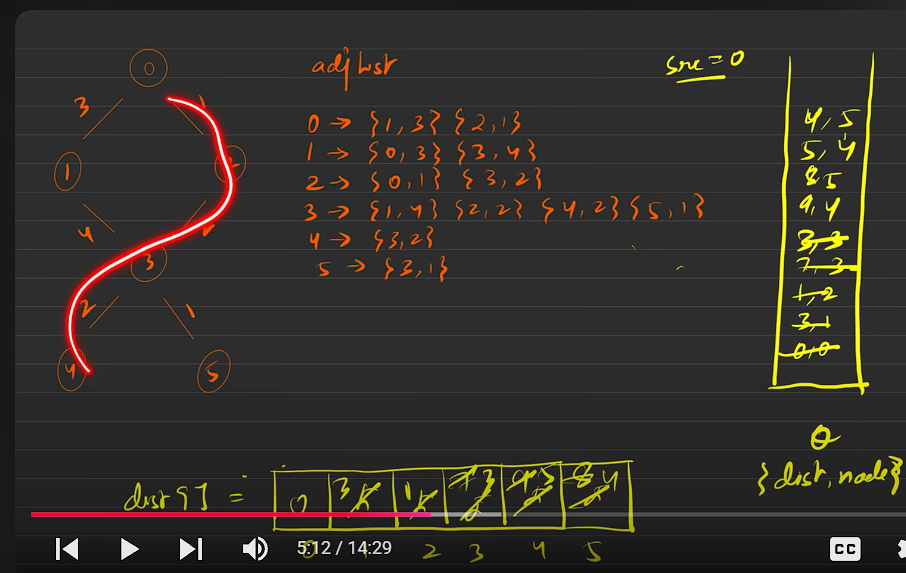 0
3
1
1
2
4
2
3
2
1
4
5
adj list
0 → {1,3} {2,1}
1 → {0,3} {3,4}
2 → {0,1} {3,2}
3 → {1,4} {2,2} {4,2} {5,1}
4 → {3,2}
5 → {3,1}
src = 0
4,5
5,4
8,5
9,4
3,3
7,3
1,2
3,1
0,0
Q
{dist, node}
dist[] =
0 3 1
0 2 3 4 5
5:12 / 14:29
CC